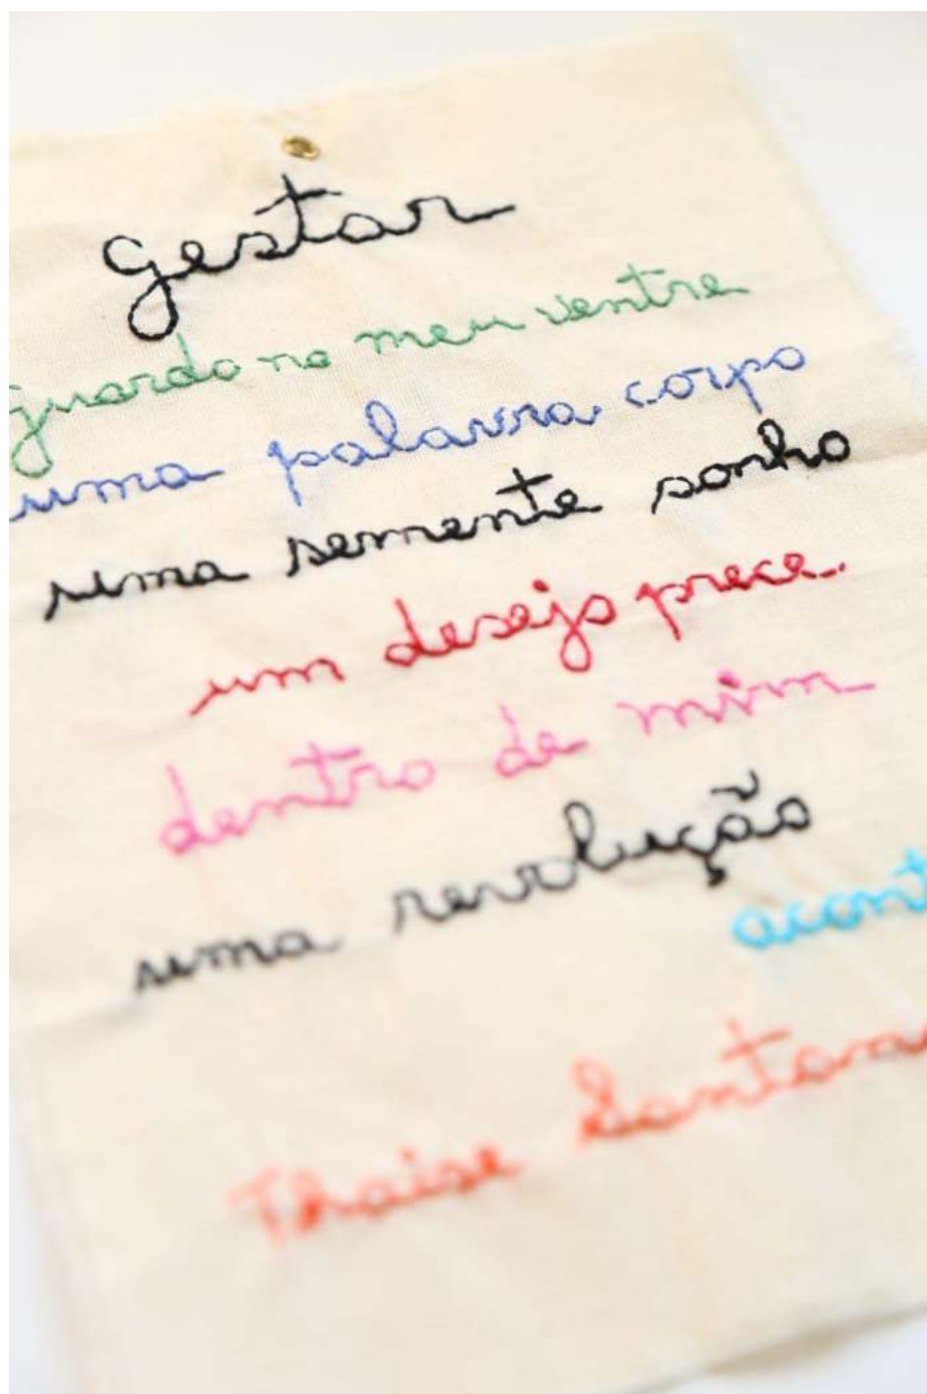 gestar
guardo no meu ventre
uma palavra corpo
uma semente sonho
um desejo prece.
dentro de mim
uma revolução
acont
Thaise Santan